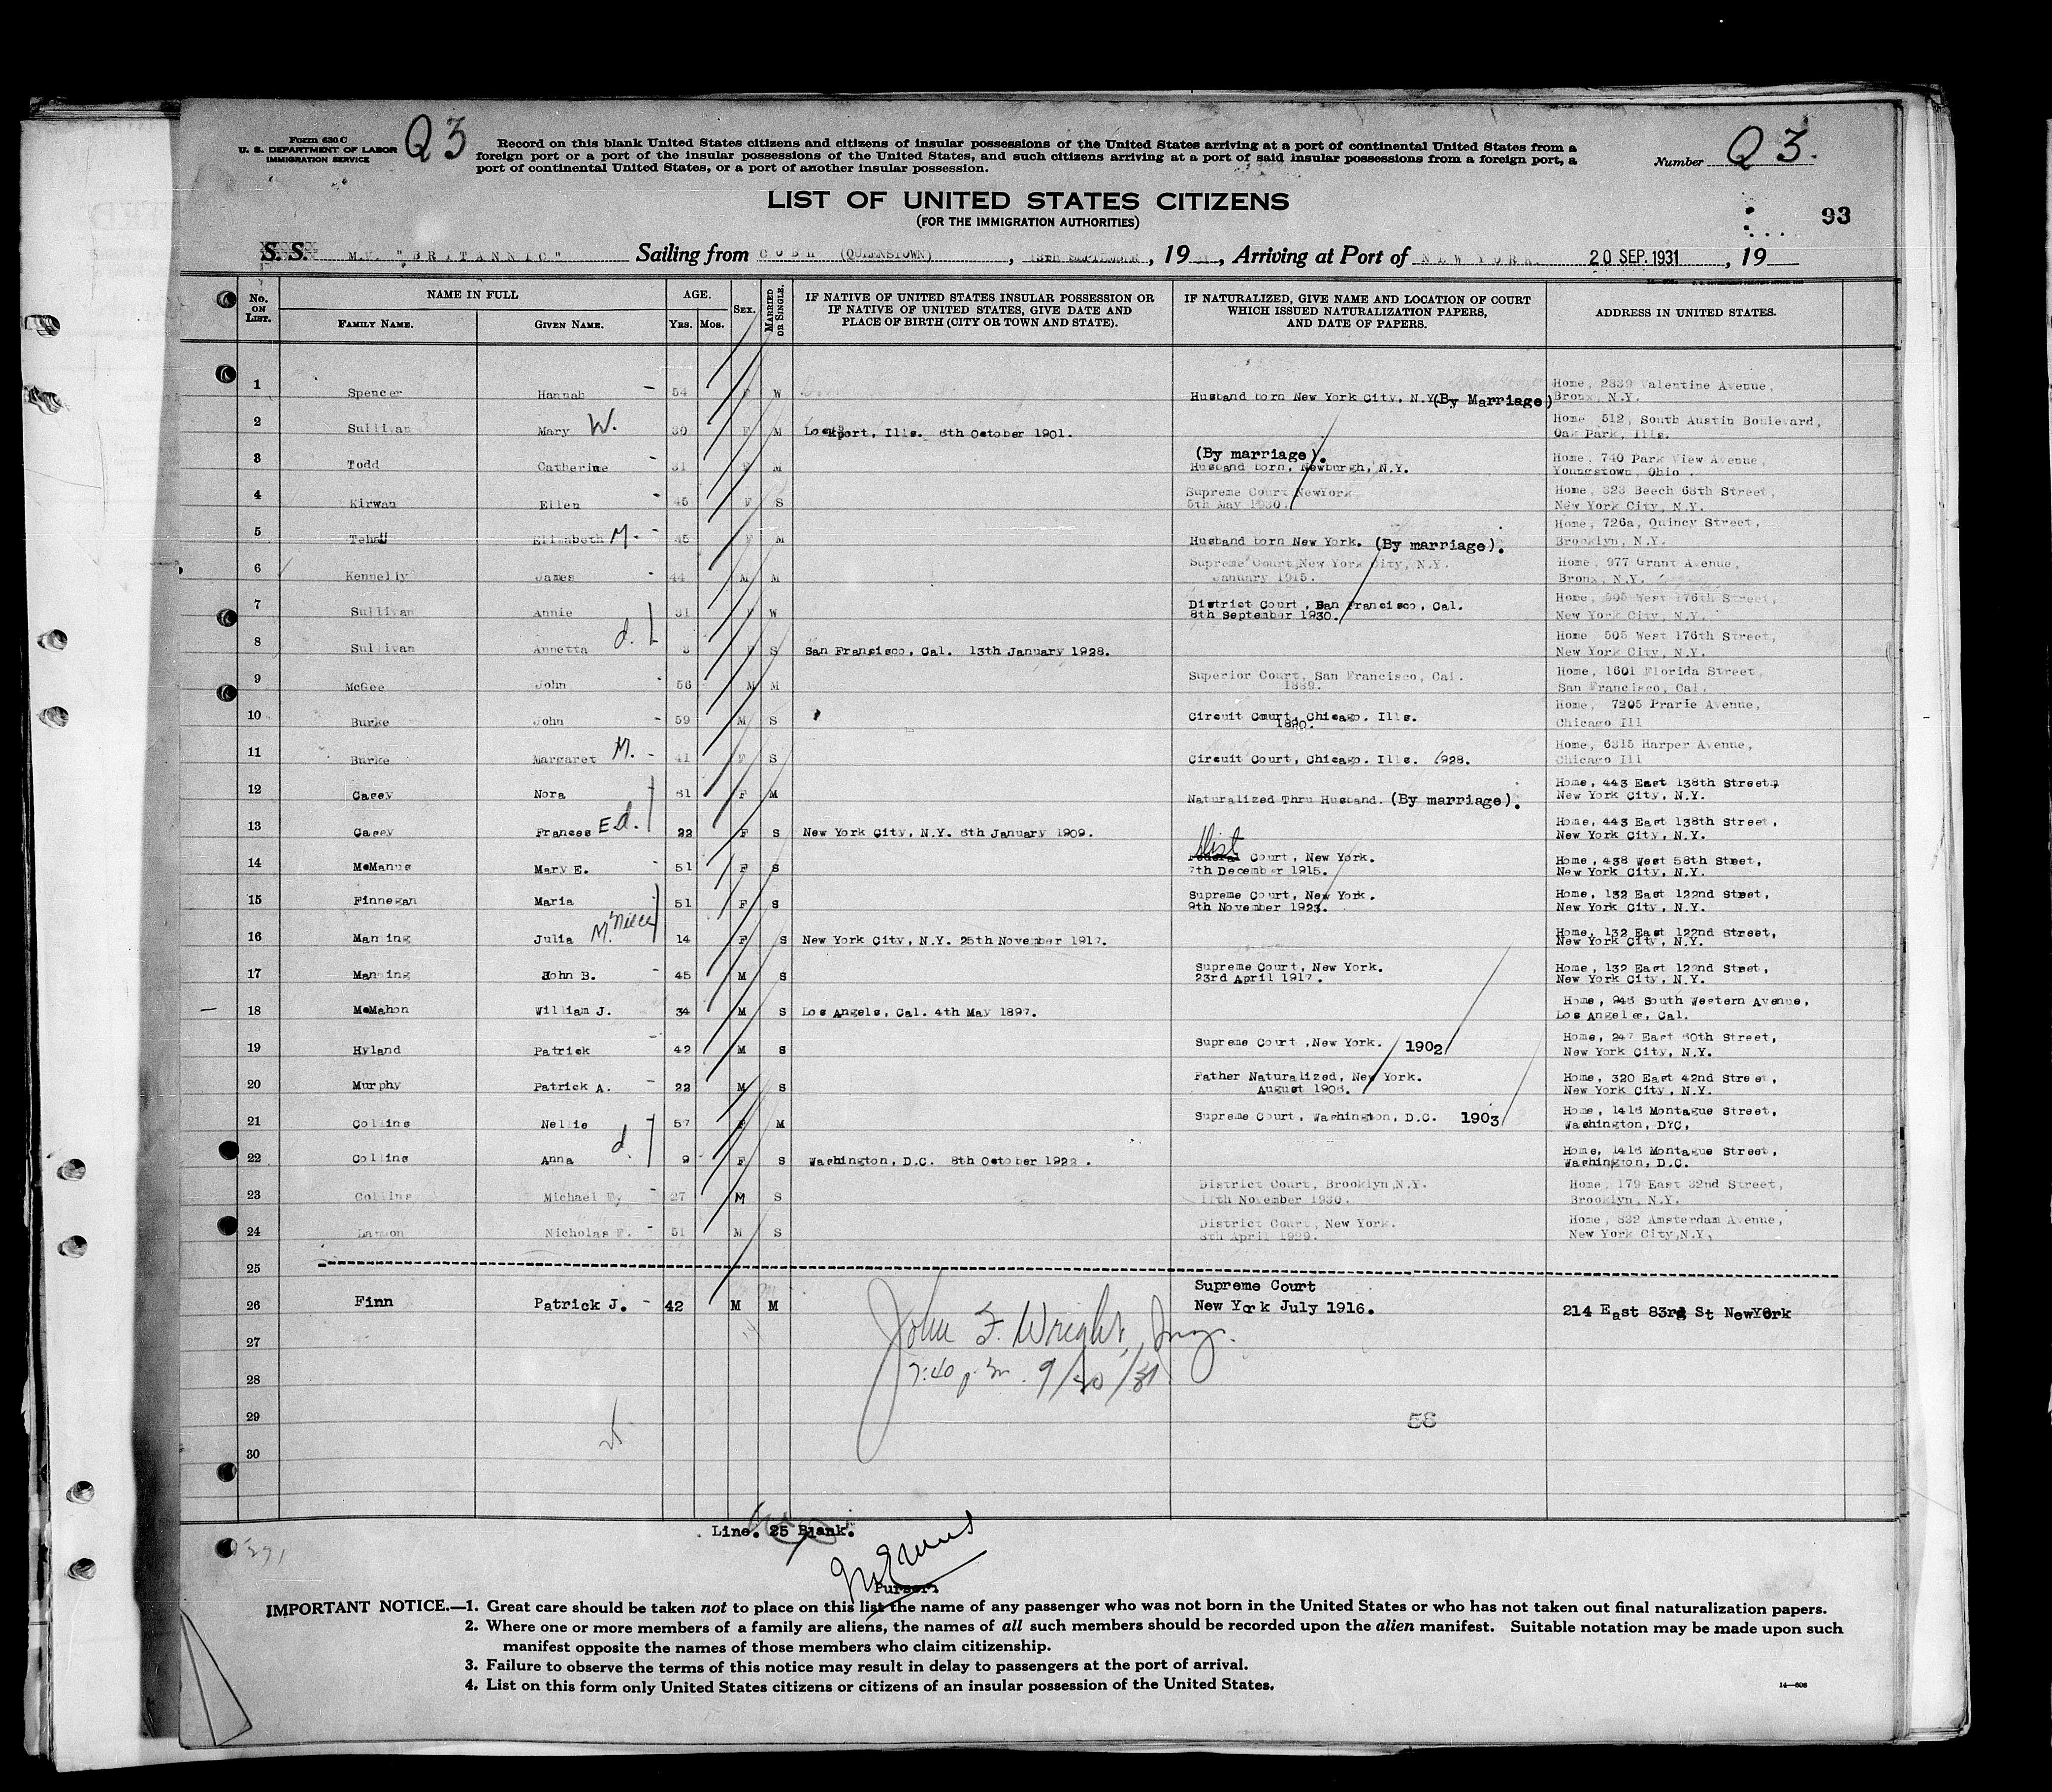 Form 630 C
U. S. DEPARTMENT OF LABOR
IMMIGRATION SERVICE
Q3
Record on this blank United States citizens and citizens of insular possessions of the United States arriving at a port of continental United States from a
foreign port or a port of the insular possessions of the United States, and such citizens arriving at a port of said insular possessions from a foreign port, a
port of continental United States, or a port of another insular possession.
Number Q 3.
LIST OF UNITED STATES CITIZENS
(FOR THE IMMIGRATION AUTHORITIES)
93
S. S. M.V. "BRITANNIC" Sailing from COBH (QUEENSTOWN), 13th SEPTEMBER, 19 31, Arriving at Port of NEW YORK. 20 SEP. 1931, 19
No. ON LIST. NAME IN FULL AGE. SEX. MARRIED OR SINGLE. IF NATIVE OF UNITED STATES INSULAR POSSESSION OR IF NATIVE OF UNITED STATES, GIVE DATE AND PLACE OF BIRTH (CITY OR TOWN AND STATE). IF NATURALIZED, GIVE NAME AND LOCATION OF COURT WHICH ISSUED NATURALIZATION PAPERS, AND DATE OF PAPERS. ADDRESS IN UNITED STATES.
FAMILY NAME. GIVEN NAME. YRS. MOS.
1 Spencer Hannah - 54 F W Husband born New York City, N.Y. (By Marriage) Home, 2839 Valentine Avenue,
Bronx, N.Y.
2 Sullivan Mary W. 30 F M Lockport, Ills. 6th October 1901. Home 512, South Austin Boulevard,
Oak Park, Ills.
3 Todd Catherine - 31 F M (By marriage). Home, 740 Park View Avenue,
Husband born, Newburgh, N.Y. Youngstown, Ohio.
4 Kirwan Ellen - 45 F S Supreme Court NewYork Home, 323 Beech 68th Street,
5th May 1930. New York City, N.Y.
5 Elizabeth M. - 45 F M Husband born New York. (By marriage). Home, 726a, Quincy Street,
Brooklyn, N.Y.
6 Kennelly James - 44 M M Supreme Court, New York City, N.Y. Home, 977 Grant Avenue,
January 1915. Bronx, N.Y.
7 Sullivan Annie 31 F W District Court, San Francisco, Cal. Home, 505 West 176th Street,
8th September 1930. New York City, N.Y.
8 Sullivan Annetta d. 3 F S San Fransisco, Cal. 13th January 1928. Home 505 West 176th Street,
New York City, N.Y.
9 McGee John - 56 M M Superior Court, San Francisco, Cal. Home, 1601 Florida Street
1889. San Francisco, Cal.
10 Burke John - 59 M S Circuit Court, Chicago. Ills. Home, 7205 Prarie Avenue,
1890. Chicago Ill
11 Burke Margaret M. - 41 F S Circuit Court, Chicago. Ills. 1928. Home, 6315 Harper Avenue,
Chicago Ill
12 Casey Nora 61 F M Naturalized Thru Husband. (By marriage). Home, 443 East 138th Street,
New York City, N.Y.
13 Casey Frances E d. 22 F S New York City, N.Y. 6th January 1909. Home, 443 East 138th Street,
New York City, N.Y.
14 McManus Mary E. - 51 F S Dist Federal Court, New York. Home, 438 West 58th Street,
7th December 1915. New York City, N.Y.
15 Finnegan Maria 51 F S Supreme Court, New York. Home, 132 East 122nd Street,
9th November 1923. New York City, N.Y.
16 Manning Julia M. niece 14 F S New York City, N.Y. 25th November 1917. Home, 132 East 122nd Street,
New York City, N.Y.
17 Manning John B. - 45 M S Supreme Court, New York. Home, 132 East 122nd Street,
23rd April 1917. New York City, N.Y.
18 McMahon William J. 34 M S Los Angels, Cal. 4th May 1897. Home, 946 South Western Avenue,
Los Angeles, Cal.
19 Hyland Patrick - 42 M S Supreme Court, New York. 1902 Home, 247 East 60th Street,
New York City, N.Y.
20 Murphy Patrick A. - 22 M S Father Naturalized, New York. Home, 320 East 42nd Street,
August 1906. New York City, N.Y.
21 Collins Nellie 57 F M Supreme Court, Washington, D.C. 1903 Home, 1416 Montague Street,
Washington, DYC,
22 Collins Anna d. 9 F S Washington, D.C. 8th October 1922. Home, 1416 Montague Street,
Washington, D.C.
23 Collins Michael F. - 27 M S District Court, Brooklyn, N.Y. Home, 179 East 32nd Street,
11th November 1930. Brooklyn, N.Y.
24 Nicholas F. - 51 M S District Court, New York. Home, 832 Amsterdam Avenue,
8th April 1929. New York City, N.Y,
25
26 Finn Patrick J. - 42 M M Supreme Court
New York July 1916. 214 East 83rd St NewYork
27 John F. Wright, Insp.
28 7:40 p.m. 9/20/31
29 56
30
Line. 25 Blank.
Purser.
IMPORTANT NOTICE.—1. Great care should be taken not to place on this list the name of any passenger who was not born in the United States or who has not taken out final naturalization papers.
2. Where one or more members of a family are aliens, the names of all such members should be recorded upon the alien manifest. Suitable notation may be made upon such
manifest opposite the names of those members who claim citizenship.
3. Failure to observe the terms of this notice may result in delay to passengers at the port of arrival.
4. List on this form only United States citizens or citizens of an insular possession of the United States.
14—606